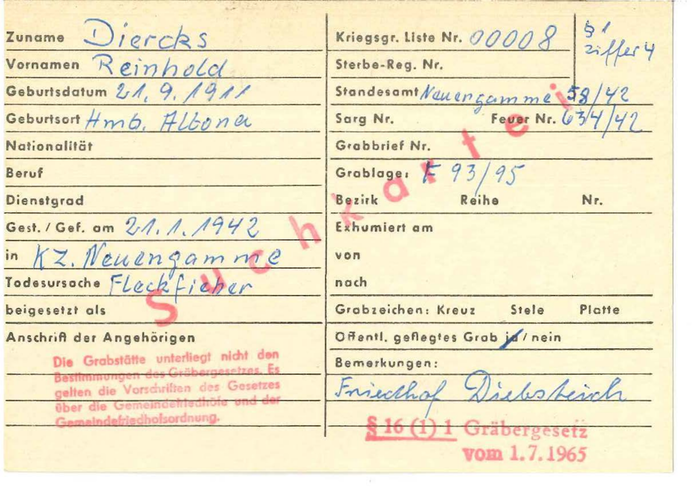 Zuname Diercks
Vornamen Reinhold
Geburtsdatum 21.9.1911
Geburtsort Hmb. Altona
Nationalität
Beruf
Dienstgrad
Gest./Gef. am 21.1.1942
in KZ. Neuengamme
Todesursache Fleckfieber
beigesetzt als
Anschrift der Angehörigen
Die Grabstätte unterliegt nicht den
Bestimmungen des Gräbergesetzes. Es
gelten die Vorschriften des Gesetzes
über die Gemeindefriedhöfe und der
Gemeindefriedhofsordnung.
Suchkartei
Kriegsgr. Liste Nr. 00008
§ 1
Ziffer 4
Sterbe-Reg. Nr.
Standesamt Neuengamme 58/42
Sarg Nr. Feuer Nr. 634/42
Grabbrief Nr.
Grablage: F 93/95
Bezirk Reihe Nr.
Exhumiert am
von
nach
Grabzeichen: Kreuz Stele Platte
Öffentl. gepflegtes Grab ja/nein
Bemerkungen:
Friedhof Diebsteich
§ 16 (1) 1 Gräbergesetz
vom 1.7.1965